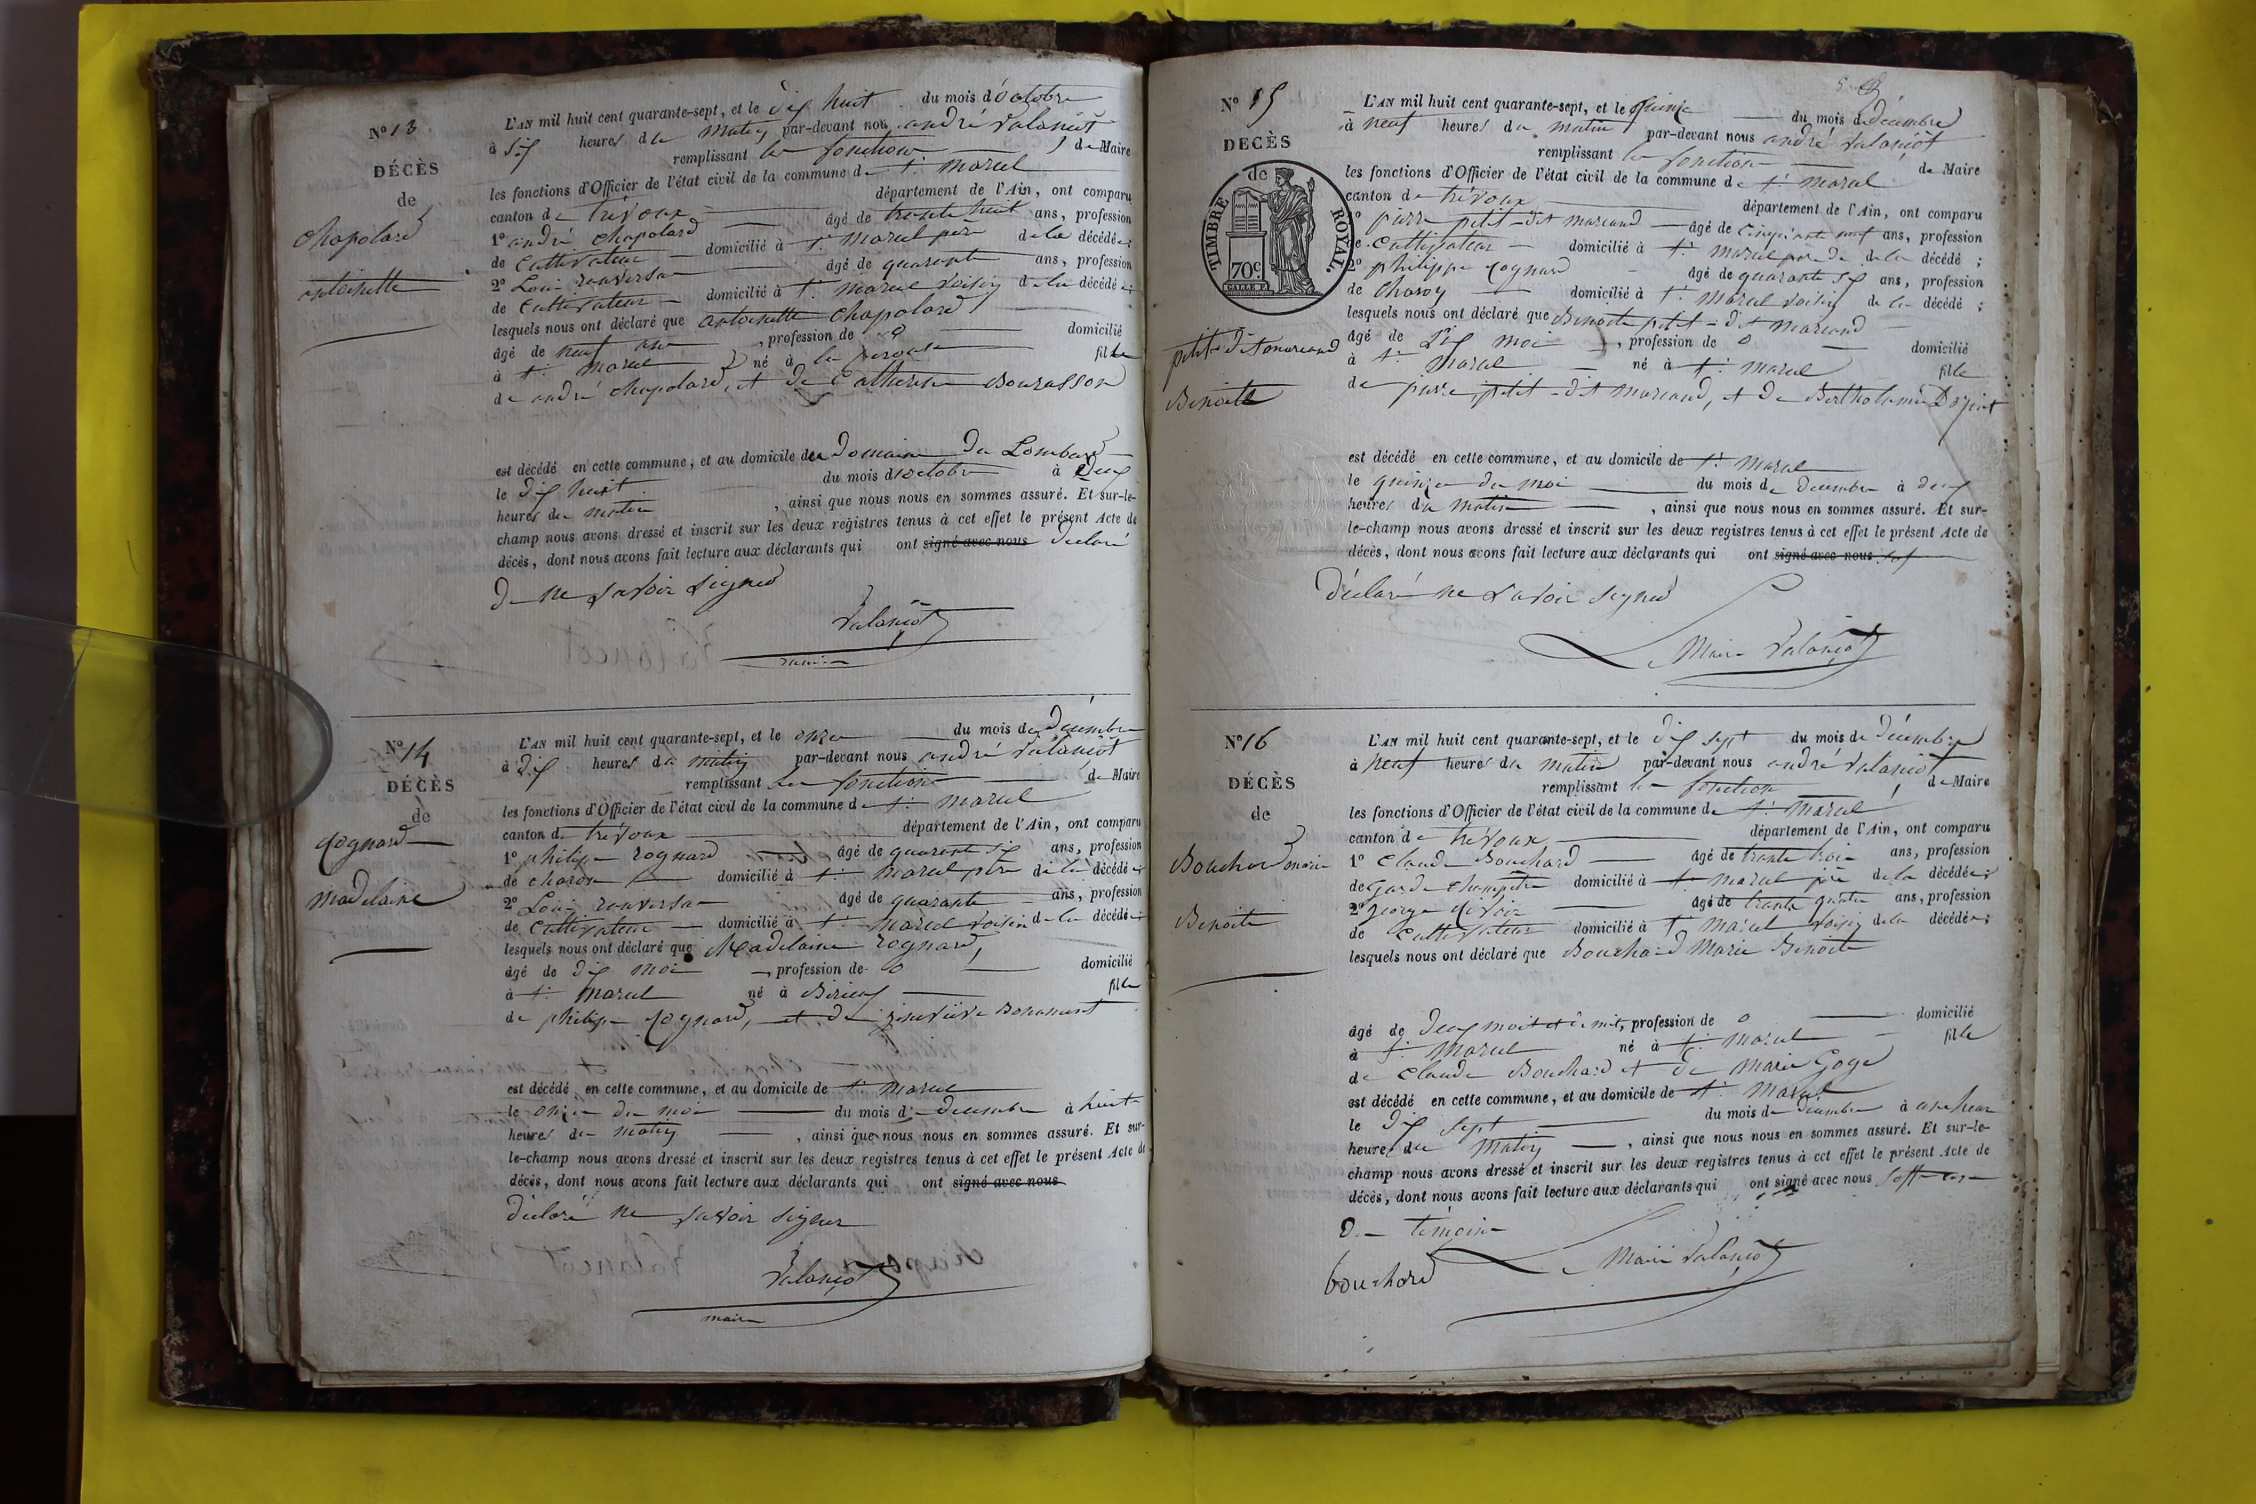 N° 13
DÉCÈS
de
Chapolard
antoinette
L'AN mil huit cent quarante-sept, et le dix huit du mois d'octobre
à six heures du matin par-devant nous andré Valançot
remplissant les fonction de Maire
les fonctions d'Officier de l'état civil de la commune de St. Marcel
canton de trévoux département de l'Ain, ont comparu
1° andré Chapolard âgé de trente huit ans, profession
de Cultivateur domicilié à St. Marcel père de la décédée;
2° Loui âgé de quarante ans, profession
de Cultivateur domicilié à St. Marcel voisin de la décédée;
lesquels nous ont déclaré que antoinette Chapolard
âgé de neuf an, profession de 0 domicilié
à St. Marcel né à la fille
de andré Chapolard, et de Catherine
est décédé en cette commune, et au domicile du Domaine du Lombard
le dix huit du mois d'octobre à deux
heures du matin, ainsi que nous nous en sommes assuré. Et sur-le-
champ nous avons dressé et inscrit sur les deux registres tenus à cet effet le présent Acte de
décès, dont nous avons fait lecture aux déclarants qui ont signé avec nous déclaré
de ne savoir signer
Valançot
maire
N° 14
DÉCÈS
de
Cognard
Madelaine
L'AN mil huit cent quarante-sept, et le onze du mois de décembre
à dix heures du matin par-devant nous andré Valançot
remplissant les fonction de Maire
les fonctions d'Officier de l'état civil de la commune de St. Marcel
canton de trévoux département de l'Ain, ont comparu
1° philipe Cognard âgé de quarante six ans, profession
de charon domicilié à St. Marcel père de la décédée;
2° Loui âgé de quarante ans, profession
de Cultivateur domicilié à St. Marcel voisin de la décédée;
lesquels nous ont déclaré que Madelaine Cognard,
âgé de dix moi, profession de 0 domicilié
à St. Marcel né à Birieux fille
de philipe Cognard, et de
est décédé en cette commune, et au domicile de St. Marcel
le onze du moi du mois de decembre à huit
heures du matin, ainsi que nous nous en sommes assuré. Et sur-
le-champ nous avons dressé et inscrit sur les deux registres tenus à cet effet le présent Acte de
décès, dont nous avons fait lecture aux déclarants qui ont signé avec nous
déclaré ne savoir signer
Valançot
maire
N° 15
DÉCÈS
de
TIMBRE ROYAL.
70c.
petit-dit marcand
Benoite
L'AN mil huit cent quarante-sept, et le quinze du mois de décembre
à neuf heures du matin par-devant nous andré Valançot
remplissant les fonction de Maire
les fonctions d'Officier de l'état civil de la commune de St. Marcel
canton de trévoux département de l'Ain, ont comparu
1° petit-dit marcand âgé de cinquante neuf ans, profession
de Cultivateur domicilié à St. Marcel père de la décédé;
2° philippe Cognard âgé de quarante six ans, profession
de Charon domicilié à St. Marcel voisin de la décédé;
lesquels nous ont déclaré que Benoite petit-dit marcand
âgé de dix moi, profession de 0 domicilié
à St. Marcel né à St. Marcel fille
de petit-dit marcand, et de
est décédé en cette commune, et au domicile de St. Marcel
le quinze du moi du mois de decembre à deux
heures du matin, ainsi que nous nous en sommes assuré. Et sur-
le-champ nous avons dressé et inscrit sur les deux registres tenus à cet effet le présent Acte de
décès, dont nous avons fait lecture aux déclarants qui ont signé avec nous
déclaré ne savoir signer
Maire Valançot
N° 16
DÉCÈS
de
Bouchard marie
Benoite
L'AN mil huit cent quarante-sept, et le dix sept du mois de décembre
à neuf heures du matin par-devant nous andré Valançot
remplissant les fonction de Maire
les fonctions d'Officier de l'état civil de la commune de St. Marcel
canton de trévoux département de l'Ain, ont comparu
1° claude Bouchard âgé de trante troi ans, profession
de garde champêtre domicilié à St. Marcel père de la décédée;
2° george âgé de trante quatre ans, profession
de Cultivateur domicilié à St. Marcel voisin de la décédée;
lesquels nous ont déclaré que Bouchard Marie Benoite
âgé de deux mois et demit, profession de 0 domicilié
à St. Marcel né à St. Marcel fille
de Claude Bouchard et de Marie Goge
est décédé en cette commune, et au domicile de St. Marcel
le dix sept du mois de decembre à une heur
heures du matin, ainsi que nous nous en sommes assuré. Et sur-le-
champ nous avons dressé et inscrit sur les deux registres tenus à cet effet le présent Acte de
décès, dont nous avons fait lecture aux déclarants qui ont signé avec nous
témoin
bouchard
Maire Valançot